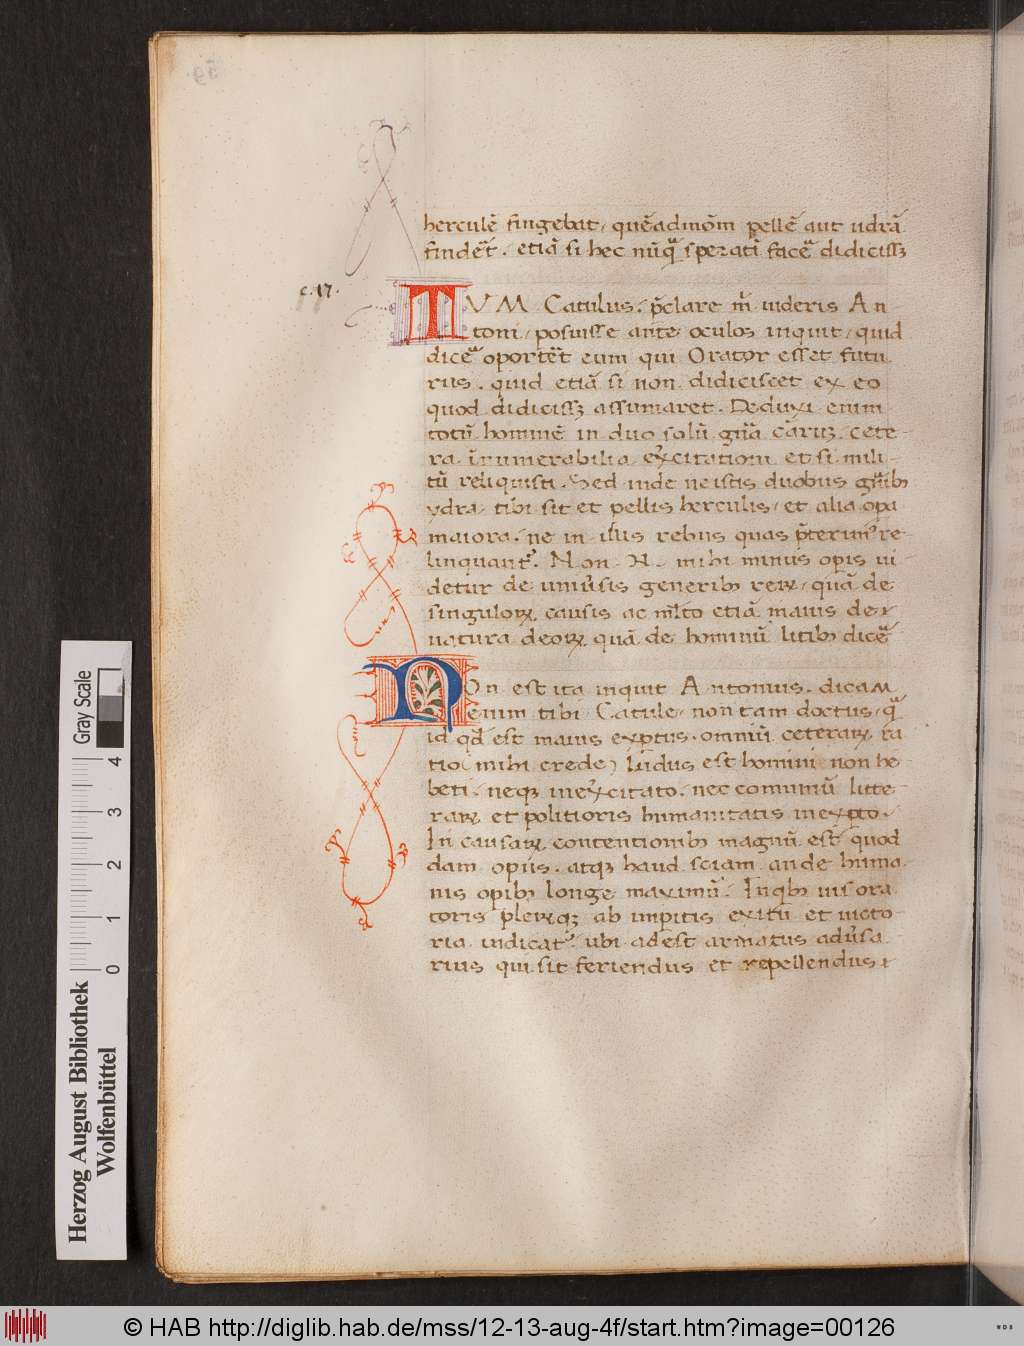 59
herculē fingebat, quēadmōm pellē aut udrā
findēt. etiā si hec nūq̄ sperati facē didicissꝫ
c. 17.
TVM Catulus. p̄clare m̄ uideris An
toni, posuisse ante, oculos inquit, quid
dicē oportēt eum qui Orator esset futu
rus. quid etiā si non didiciscet ex eo
quod didicissꝫ assumaret. Deduxi enim
totū hominē in duo solū gn̄a cāruꝫ, cete
ra īnumerabilia exercitationi et simili
tū reliquisti. Sed inde ne istis duobus gn̄ibꝫ
ydra, tibi sit et pellis herculis, et alia opa
maiora. ne in isus rebus quas p̄termis re
linquantꝰ. Non N mihi minus opis ui
detur de uniūsis generibꝫ reꝝ, quā de
singuloꝝ causis ac m̄lto etiā maius de
natura deoꝝ quā de hominū litibꝫ dicē
NOn est ita inquit Antonius. dicam
enim tibi Catule, non tam doctus, q̄
id qd̄ est maius exptus. omniū ceteraꝝ ra
tio (mihi crede) ludus est homini non he
beti. neqꝫ inexercitato. nec comuniū litte
raꝝ et politioris humanitatis inexpto.
In causaꝝ contentionibꝫ magnū est quod
dam opus. atqꝫ haud sciam an de huma
nis opibꝫ longe maximū. Inqbꝫ uis ora
toris pleꝝqꝫ ab impitis exitū et uicto
ria iudicatꝰ. ubi adest armatus adūsa
rius qui sit feriendus et repellendus
Herzog August Bibliothek
Wolfenbüttel
0 1 2 3 4
Gray Scale
© HAB http://diglib.hab.de/mss/12-13-aug-4f/start.htm?image=00126